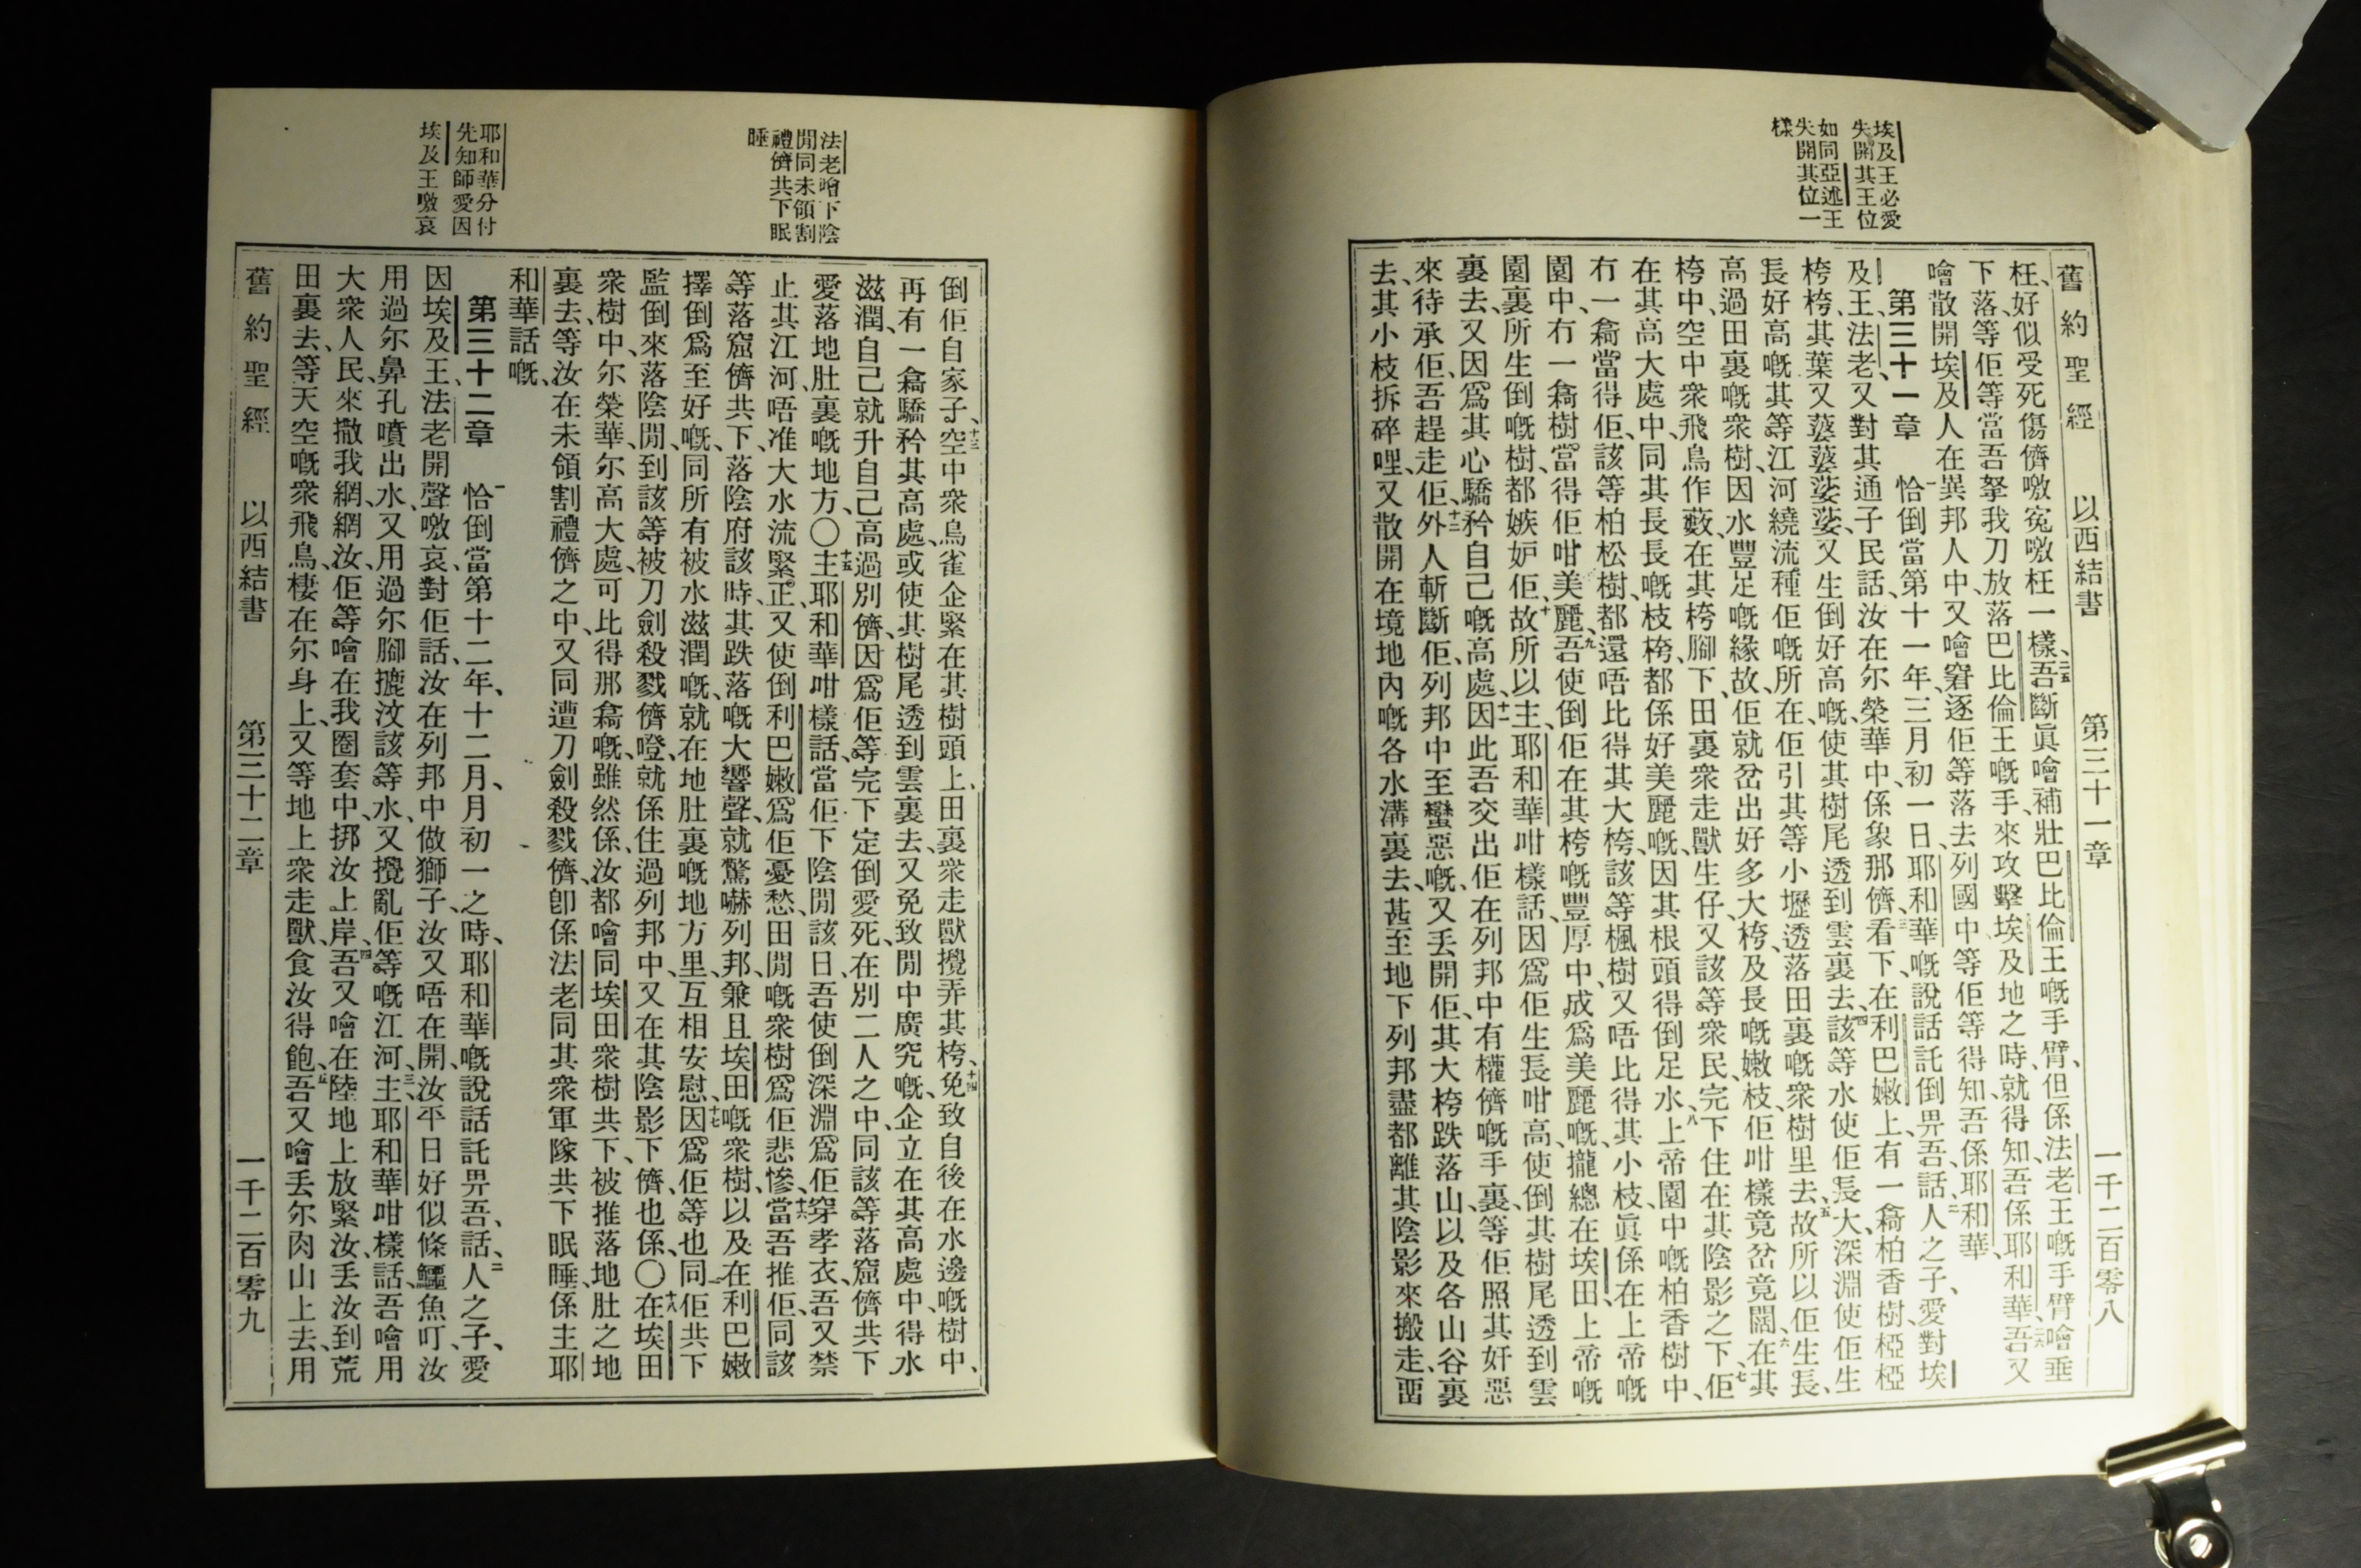 埃及王必愛
失開其王位
如同亞述王
失開其位一
樣
舊約聖經 以西結書 第三十一章 一千二百零八
枉、好似受死傷儕噭冤噭枉一樣、二五吾斷眞噲補壯巴比倫王嘅手臂、但係法老王嘅手臂噲垂
下落、等佢等當吾拏我刀放落巴比倫王嘅手、來攻擊埃及地之時、就得知、吾係耶和華、二六吾又
噲散開埃及人在異邦人中、又噲窘逐佢等落去列國中、等佢等得知、吾係耶和華、
第三十一章 一恰倒當第十一年三月初一日、耶和華嘅說話託倒畀吾、話、二人之子、愛對埃
及王、法老、又對其通子民話、汝在尔榮華中、係象那儕、三看下、在利巴嫩上、有一樖柏香樹、椏椏
桍桍、其葉又蔢蔢娑娑、又生倒好高嘅、使其樹尾透到雲裏去、四該等水使佢長大、深淵使佢生
長好高嘅、其等江河繞流種佢嘅所在、佢引其等小壢透落田裏嘅衆樹里去、五故所以佢生長、
高過田裏嘅衆樹、因水豐足嘅緣故、佢就岔出好多大桍、及長嘅嫩枝、佢咁樣竟岔竟闊、六在其
桍中、空中衆飛鳥作藪、在其桍腳下、田裏衆走獸生仔、又該等衆民、完下住在其陰影之下、七佢
在其高大處中、同其長長嘅枝桍、都係好美麗嘅、因其根頭得倒足水、八上帝園中嘅柏香樹中、
冇一樖當得佢、該等柏松樹、都還唔比得其大桍、該等楓樹又唔比得其小枝、眞係在上帝嘅
園中、冇一樖樹、當得佢咁美麗、九吾使倒佢在其桍嘅豐厚中、成爲美麗嘅、攏總在埃田、上帝嘅
園裏所生倒嘅樹、都嫉妒佢、十故所以主、耶和華咁樣話、因爲佢生長咁高、使倒其樹尾透到雲
裏去、又因爲其心驕矜自己嘅高處、十一因此吾交出佢在列邦中有權儕嘅手裏、等佢照其奸惡
來待承佢、吾趕走佢、十二外人斬斷佢、列邦中至蠻惡嘅、又丟開佢、其大桍跌落山、以及各山谷裏
去、其小枝拆碎哩、又散開在境地內嘅各水溝裏去、甚至地下列邦盡都離其陰影來搬走、畱
法老噲下陰
間同未領割
禮儕共下眠
睡
耶和華分付
先知師愛因
埃及王噭哀
倒佢自家子、十三空中衆鳥雀企緊在其樹頭上、田裏衆走獸攪弄其桍、十四免致自後在水邊嘅樹中、
再有一樖驕矜其高處、或使其樹尾透到雲裏去、又免致閒中廣究嘅、企立在其高處中、得水
滋潤、自己就升自己高過別儕、因爲佢等完下定倒愛死、在別二人之中、同該等落窟儕共下
愛落地肚裏嘅地方、〇十五主耶和華咁樣話、當佢下陰間該日、吾使倒深淵爲佢穿孝衣、吾又禁
止其江河、唔准大水流緊、正又使倒利巴嫩爲佢憂愁、田間嘅衆樹爲佢悲慘、十六當吾推佢、同該
等落窟儕共下、落陰府該時、其跌落嘅大響聲、就驚嚇列邦、兼且埃田嘅衆樹、以及在利巴嫩
擇倒爲至好嘅、同所有被水滋潤嘅、就在地肚裏嘅地方里、互相安慰、十七因爲佢等也同佢共下
監倒來落陰間、到該等被刀劍殺戮儕噔、就係住過列邦中、又在其陰影下儕、也係、〇十八在埃田
衆樹中、尔榮華、尔高大處、可比得那樖嘅、雖然係、汝都噲同埃田衆樹共下、被推落地肚之地
裏去、等汝在未領割禮儕之中、又同遭刀劍殺戮儕、卽係法老同其衆軍隊共下眠睡、係主耶
和華話嘅、
第三十二章 一恰倒當第十二年、十二月、月初一之時、耶和華嘅說話託畀吾、話、二人之子、愛
因埃及王、法老開聲噭哀、對佢話、汝在列邦中做獅子、汝又唔在開、汝平日好似條鱷魚叮、汝
用過尔鼻孔噴出水、又用過尔腳摝汶該等水、又攪亂佢等嘅江河、三主耶和華咁樣話、吾噲用
大衆人民、來撒我網網汝、佢等噲在我圈套中、挷汝上岸、四吾又噲在陸地上放緊汝、丟汝到荒
田裏去、等天空嘅衆飛鳥、棲在尔身上、又等地上衆走獸、食汝得飽、五吾又噲丟尔肉山上去、用
舊約聖經 以西結書 第三十二章 一千二百零九